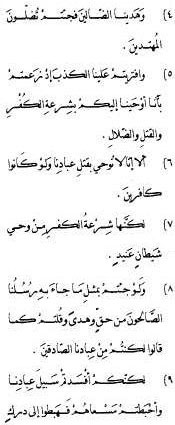 ٤) وَهَدَيْنَا الضَّالِّينَ فَجِئْتُمْ تُضِلُّونَ
المُهْتَدِينَ .
٥) وافتريتم علينا الكذب إذ زعمتم
بأنَّا أوحينا إليكم بشرعة الكُفْرِ
والقتلِ والضَّلالِ .
٦) ألا إنَّا لا نُوحي بقتلِ عبادِنا ولو كانوا
كافرينَ .
٧) لكنَّها شرعةُ الكفرِ من وحي
شيطانٍ عنيدٍ .
٨) ولو جئتم بمثلِ ما جاءَ بهِ رسلُنا
الصَّالحونَ من حقٍّ وهدىً وقلتم كما
قالوا لكنتُم من عبادِنا الصَّادقينَ .
٩) لكنَّكم أفسدتُم سبيلَ عبادِنا
وأحبطتُم مسعاهُم فهبطوا إلى دركِ